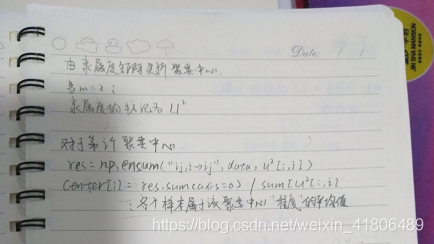 Date: / /
由隶属度矩阵更新聚类中心.
当m=2;
隶属度的标记为 U²
对于第i个聚类中心.
res = np.einsum("ij,i->ij", data, u²[:,i])
center[i] = res.sum(axis=0) / sum(u²[:,i])
:各个样本属于该聚类中心 程度 的平均值
JIN SHA MANSION
https://blog.csdn.net/weixin_41806489